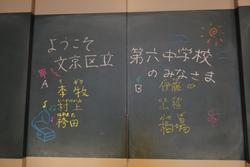 ようこそ
文京区立
第六中学校
のみなさま
A
李牧
村上
袴田
B
伊藤
稲場